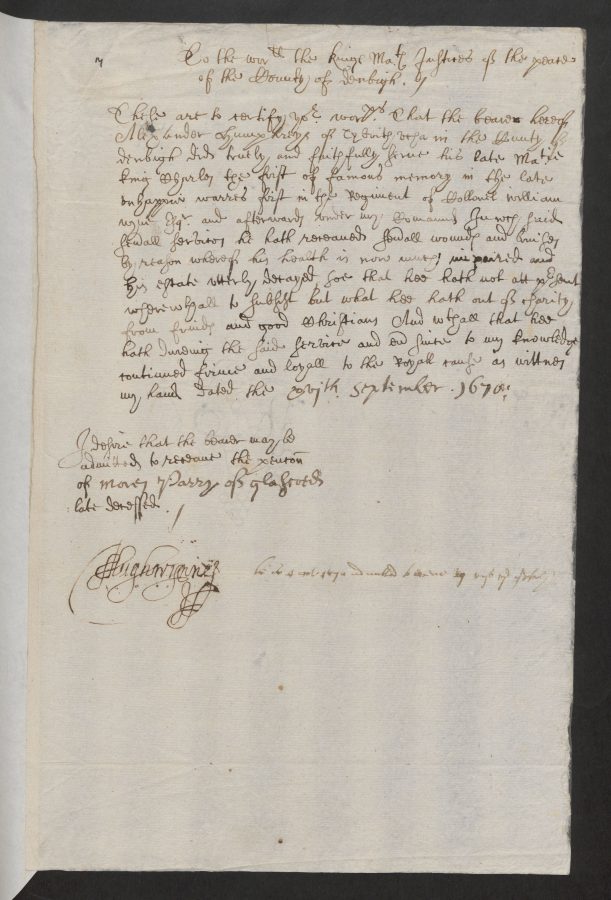 To the wor.ll the kings Ma.ts Justices of the peace
of the County of denbigh.
These are to certify yo.r wor.ps That the bearer hereof
Alexander Humphreys of in the County of
denbigh did truely and faithfully serve his late Matie
king Charles the first of famous memory in the late
unhappie warres first in the Regiment of Collonel william
wynn Esq.r and afterwards under my Comaund In w.ch said
severall services he hath receaued severall wounds and bruises
by reason whereof his health is now much impaired and
his estate utterly decayed soe that hee hath not att p.sent
wherewthall to subsist but what hee hath out of charity
from frinds and good Christians And wthall that hee
hath dureing the said service and ever since to my knowledge
continued firme and loyall to the Royall cause as wittnes
my hand dated the xvith September . 1670.
I desire that the bearer may be
admitted to receaue the pencon
of Mores Parry of glascoed
late decessed.
Hugh wynne